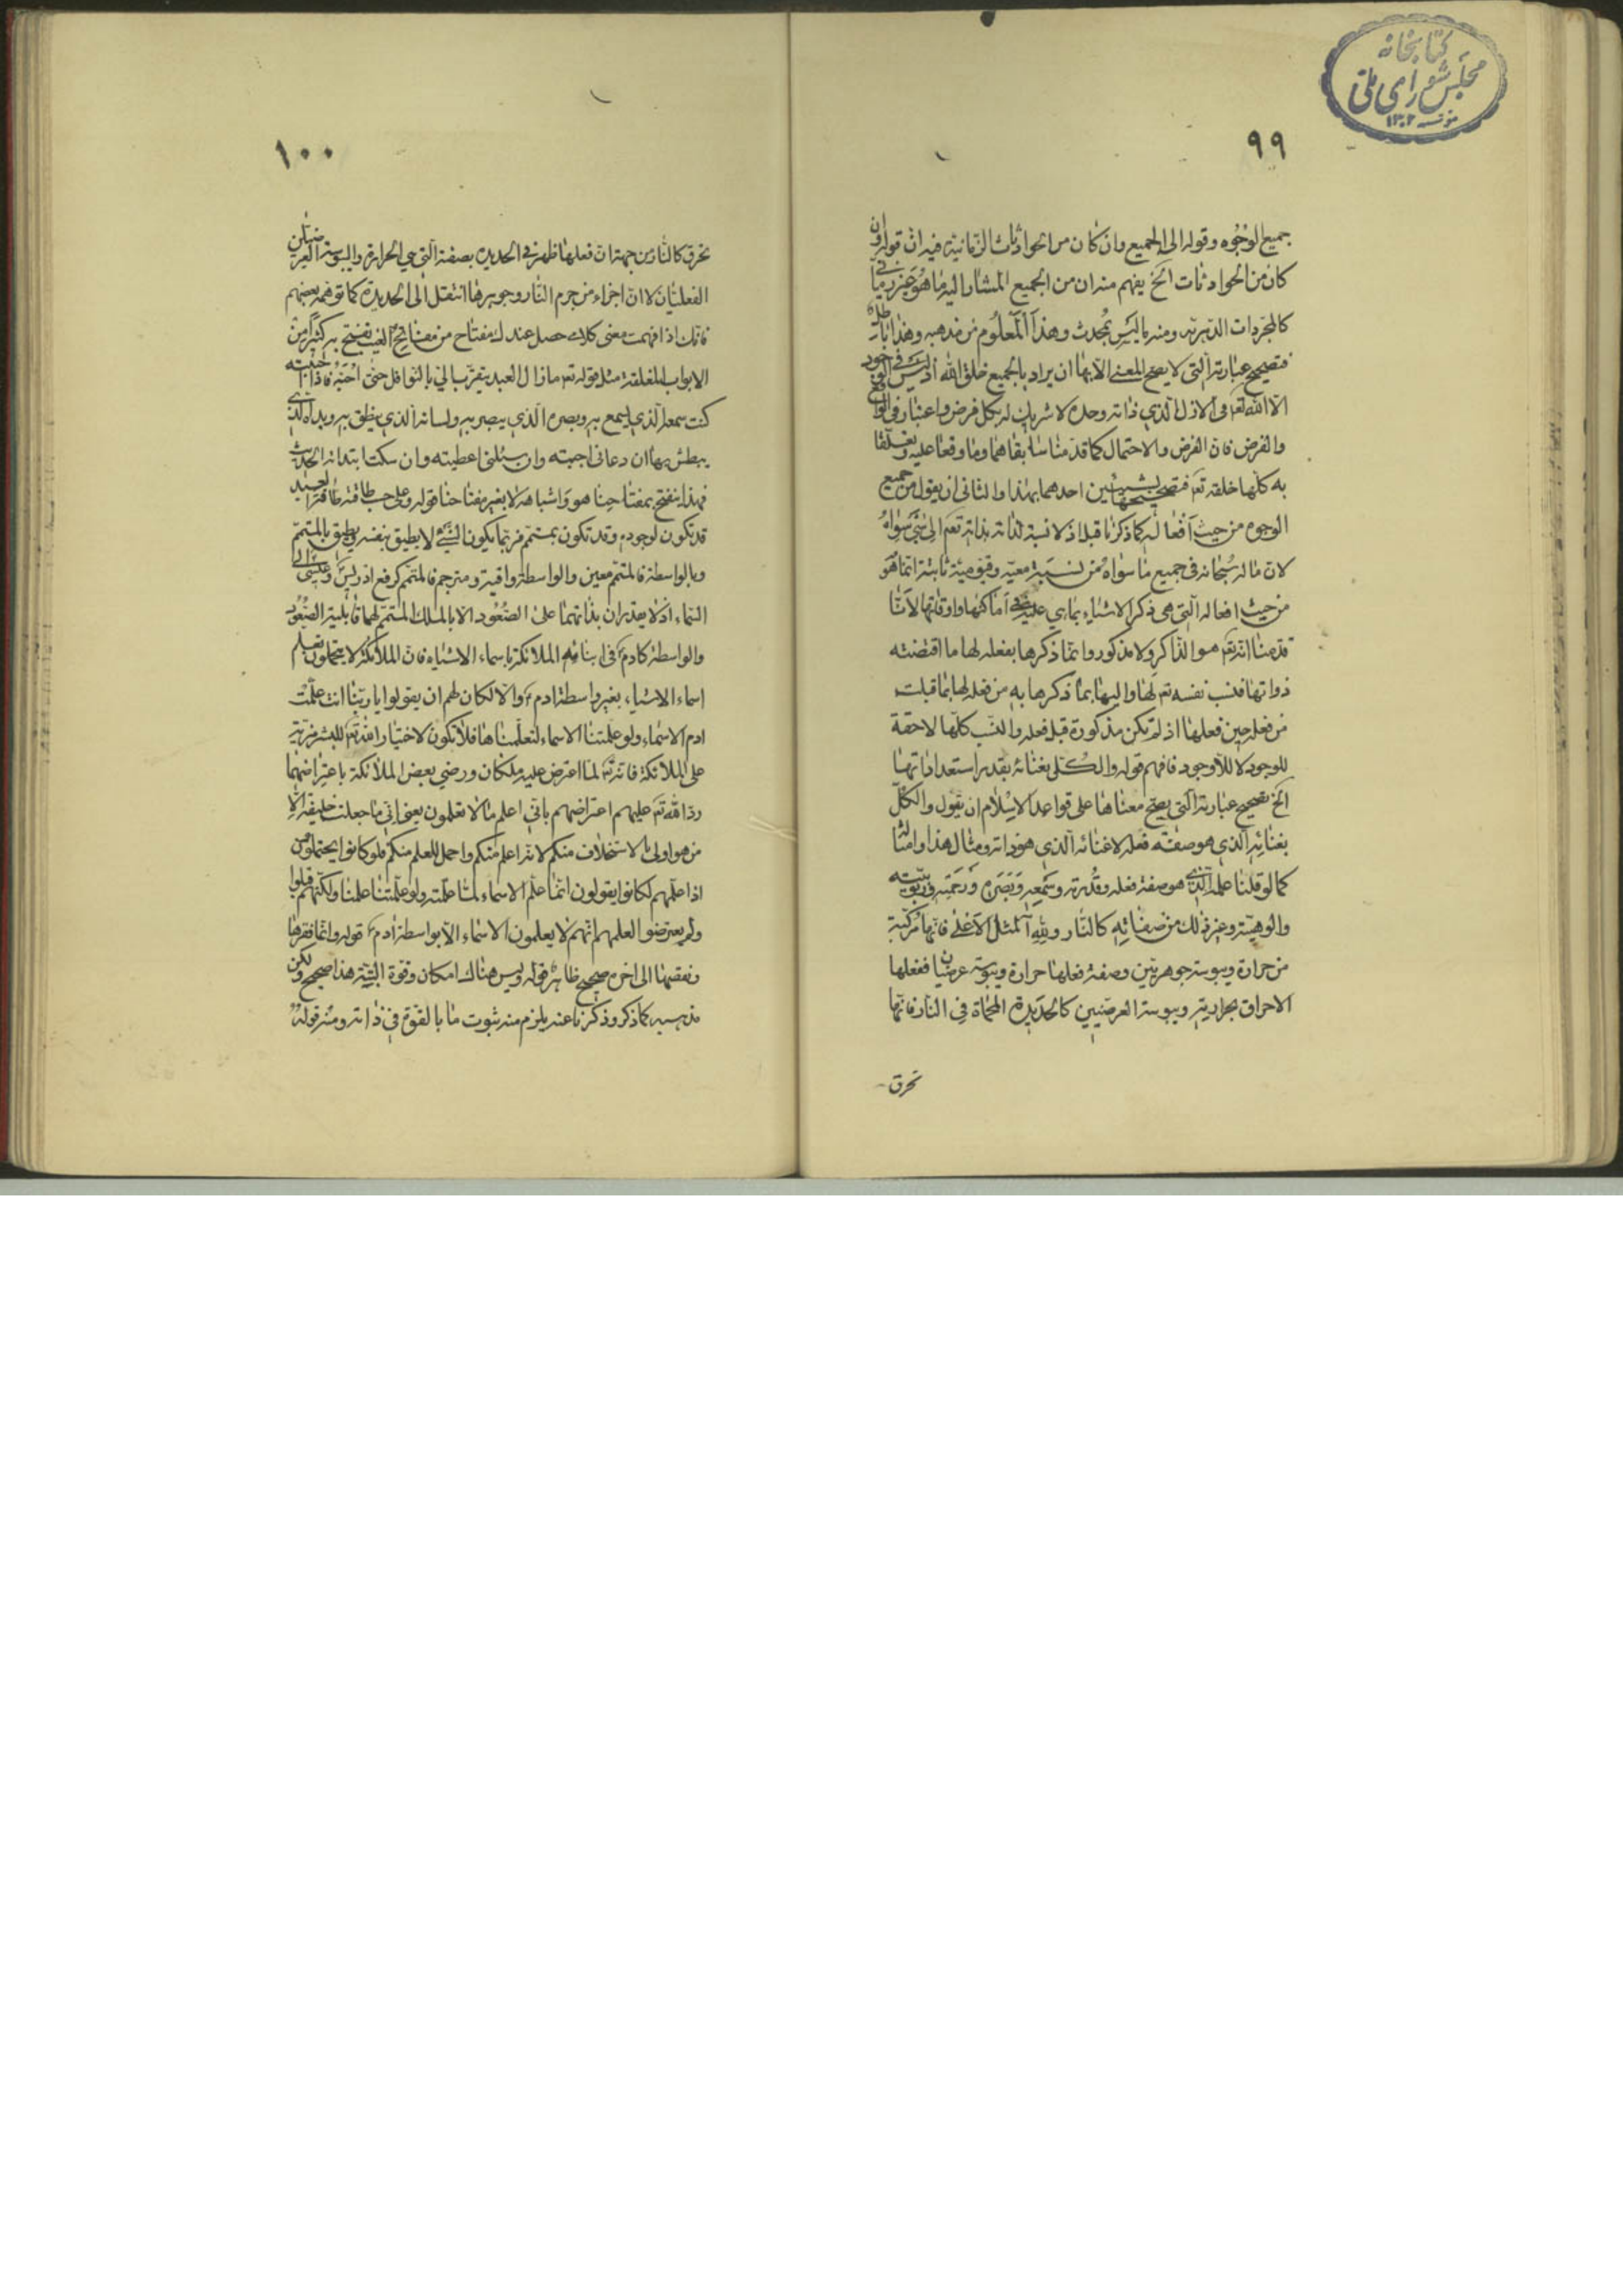 كتابخانه
مجلس شورای ملی
٩٩
جميع الوجوه وقوله الى الجميع وان كان من الحوادثات الزمانية فيه ان قوله وان
كان من الحوادثات الخ يفهم منه ان من الجميع المشار اليه ما هو
كالمجردات الدهرية ومنه ما ليس بمحدث وهذا المعلوم من مذهبه وهذا باطل
فتصحيح عبارته التي لا يصح المعنى الا بها ان يراد بالجميع خلق الله اذ ليس في الوجود
الا الله تع في الازل الذي ذاته وحده لا شريك له بكل فرض واعتبار في الواقع
والفرض فان الفرض والاحتمال كما قدمنا سابقا هما وما وقعا عليه وتعلقا
به كلها خلقه تع فتصحيحها بشيئين احدهما بهذا والثاني ان يقول من جميع
الوجوه من حيث افعاله كما ذكرنا قبل اذ لا نسبة لذاته بذاته تع الى شيء سواه
لان ما له سبحانه في جميع ما سواه من نسبة معية وقيومية ثابتة انما هو
من حيث افعاله التي هي ذكر الاشياء بما هي عليه في اماكنها واوقاتها لانا
قدمنا انه تع هو الذاكر ولا مذكور وانما ذكرها بفعله لها ما اقتضته
ذواتها فنسب نفسه تع لها واليها بما ذكرها به من فعله لها بما قبلت
من فعله حين فعلها اذ لم تكن مذكورة قبل فعله والنسب كلها لاحقة
للوجود لا للاوجود فافهم قوله والكل بغنائه بقدر استعداداتها
الخ تصحيح عبارته التي يصح معناها على قواعد الاسلام ان يقول والكل
بغنائه الذي هو صفة فعله لا غنائه الذي هو ذاته ومثال هذا وامثاله
كما لو قلنا علمه الذي هو صفة فعله وقدرته وسمعه وبصره ورحمته وربوبيته
والوهيته وغير ذلك من صفاته كالنار ولله المثل الاعلى فانها مركبة
من حرارة ويبوسة جوهريتين وصفة فعلها حرارة ويبوسة عرضيتان ففعلها
الاحراق بحرارية ويبوسة العرضيين كالحديدة المحماة في النار فانها
تحرق
١٠٠
تحرق كالنار من جهة ان فعلها ظهر في الحديدة بصفته التي هي الحرارة واليبوسة العرضيتان
الفعليتان لا ان اجزاء من جرم النار وجوهرها انتقل الى الحديدة كما توهمه بعضهم
فانك اذا فهمت معنى كلامي حصل عندك مفتاح من مفاتيح الغيب تفتح به كثيرا من
الابواب المغلقة مثل قوله تع ما زال العبد يتقرب الي بالنوافل حتى احبه فاذا احببته
كنت سمعه الذي يسمع به وبصره الذي يبصر به ولسانه الذي ينطق به ويده الذي
يبطش بها ان دعاني اجبته وان سئلني اعطيته وان سكت ابتدأته الحديث
فهذا ينفتح بمفتاحنا هو واشباهه لا بغير مفتاحنا قوله وعلى حسب طاقته طاقة العبيد
قد تكون لوجوده وقد تكون بمتمم فربما يكون الشيء لا يطيق بنفسه ويطيق بالمتمم
وبالواسطة فالمتمم معين والواسطة واقية ومترجم فالمتمم كرفع ادريس وعيسى الى
السماء اذ لا يقدران بذاتهما على الصعود الا بالملك المتمم لهما قابلية الصعود
والواسطة كادم ع في انبائه الملائكة باسماء الاشياء فان الملائكة لا يتحملون تعلم
اسماء الاشياء بغير واسطة ادم ع والا لكان لهم ان يقولوا يا ربنا انت علمت
ادم الاسماء ولو علمتنا الاسماء لتعلمناها فلا تكون لاختيار الله تع للبشر مزية
على الملائكة فانه تع لما اعترض عليه ملكان ورضي بعض الملائكة باعتراضهما
رد الله تع عليهم اعتراضهم باني اعلم ما لا تعلمون يعني اني ما جعلت خليفة الا
من هو اولى بالاستخلاف منكم لانه اعلم منكم واحمل للعلم منكم فلو كانوا يحتملون
اذا علمهم لكانوا يقولون انما علم الاسماء لما علمته ولو علمتنا علمنا ولكنهم قبلوا
ولم يعترضوا لعلمهم انهم لا يعلمون الاسماء الا بواسطة ادم ع قوله وانما فقرها
ونقصها الى اخره صحيح ظاهر قوله وليس هناك امكان وقوة البتة هذا صحيح ولكن
مذهبه كما ذكر وذكرنا عنه يلزم منه ثبوت ما بالقوة في ذاته ومنه قوله